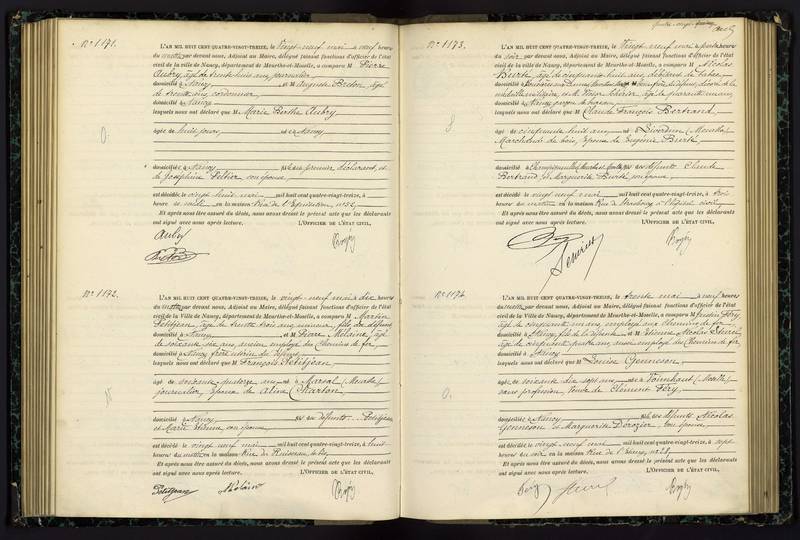 N° 1171.
L'AN MIL HUIT CENT QUATRE-VINGT-TREIZE, le vingt-neuf mai à neuf heures
du matin par devant nous, Adjoint au Maire, délégué faisant fonctions d'officier de l'état
civil de la ville de Nancy, département de Meurthe-et-Moselle, a comparu M Pierre
Aubry, âgé de trente huit ans, journalier
domicilié à Nancy et M Auguste Breton, âgé
de trente cinq ans, cordonnier
domicilié à Nancy
lesquels nous ont déclaré que M Marie Berthe Aubry,
âgée de huit jours, né à Nancy
domicilié à Nancy fille du premier déclarant, et
de Joséphine Peltier son épouse,
est décédée le vingt huit mai mil huit cent quatre-vingt-treize, à
heure en la maison Rue de l'Équitation, n° 52,
Et après nous être assuré du décès, nous avons dressé le présent acte que les déclarants
ont signé avec nous après lecture. L'OFFICIER DE L'ÉTAT CIVIL,
Aubry
N° 1172.
L'AN MIL HUIT CENT QUATRE-VINGT-TREIZE, le vingt-neuf mai à dix heures
du matin par devant nous, Adjoint au Maire, délégué faisant fonctions d'officier de l'état
civil de la Ville de Nancy, département de Meurthe-et-Moselle, a comparu M Martin
Petitjean, âgé de trente trois ans, mineur, fils du défunt
domicilié à Nancy et M Pierre Mélaine, âgé
de soixante dix ans, ancien employé des Chemins de fer,
domicilié à Nancy frère utérin du défunt
lesquels nous ont déclaré que M François Petitjean
âgé de soixante-quatorze ans né à Marsal (Meurthe)
journalier, époux de Aline Charton
domicilié à Nancy fils des défunts Petitjean
et Marie Étienne son épouse,
est décédé le vingt neuf mai mil huit cent quatre-vingt-treize, à huit
heures du matin en la maison Rue du Ruisseau,
Et après nous être assuré du décès, nous avons dressé le présent acte que les déclarants
ont signé avec nous après lecture. L'OFFICIER DE L'ÉTAT CIVIL,
Petitjean Mélaine
N° 1173.
L'AN MIL HUIT CENT QUATRE-VINGT-TREIZE, le vingt-neuf mai à quatre heures
du soir par devant nous, Adjoint au Maire, délégué faisant fonctions d'officier de l'état
civil de la ville de Nancy, département de Meurthe-et-Moselle, a comparu M Nicolas
Burté, âgé de cinquante huit ans, débitant de tabac,
médaille militaire, et M âgé de quarante ans
domicilié à Nancy, garçon de bureau,
lesquels nous ont déclaré que M Claude François Bertrand,
âgé de cinquante huit ans, né à Liverdun (Meurthe)
Marchand de bois, époux de Eugénie Burté,
domicilié à Champigneulles fils des défunts Claude
Bertrand, et Marguerite son épouse
est décédé le vingt neuf mai mil huit cent quatre-vingt-treize, à trois
heures du matin en la maison Rue de Strasbourg à l'hôpital civil,
Et après nous être assuré du décès, nous avons dressé le présent acte que les déclarants
ont signé avec nous après lecture. L'OFFICIER DE L'ÉTAT CIVIL,
N° 1174.
L'AN MIL HUIT CENT QUATRE-VINGT-TREIZE, le trente mai à neuf heures
du matin par devant nous, Adjoint au Maire, délégué faisant fonctions d'officier de l'état
civil de la Ville de Nancy, département de Meurthe-et-Moselle, a comparu M Féry,
âgé de cinquante ans, employé aux Chemins de fer
domicilié à Nancy, fils de la défunte et M Étienne Nicolas
âgé de cinquante quatre ans, aussi employé des Chemins de fer
domicilié à Nancy
lesquels nous ont déclaré que M Louise Genneson,
âgée de soixante dix sept ans née à (Moselle)
sans profession, veuve de Clément Féry,
domiciliée à Nancy fille des défunts Nicolas
Genneson et Marguerite Dérozier, son épouse,
est décédée le vingt neuf mai mil huit cent quatre-vingt-treize, à sept
heures du soir en la maison Rue de l'Étang, n° 28,
Et après nous être assuré du décès, nous avons dressé le présent acte que les déclarants
ont signé avec nous après lecture. L'OFFICIER DE L'ÉTAT CIVIL,
Féry